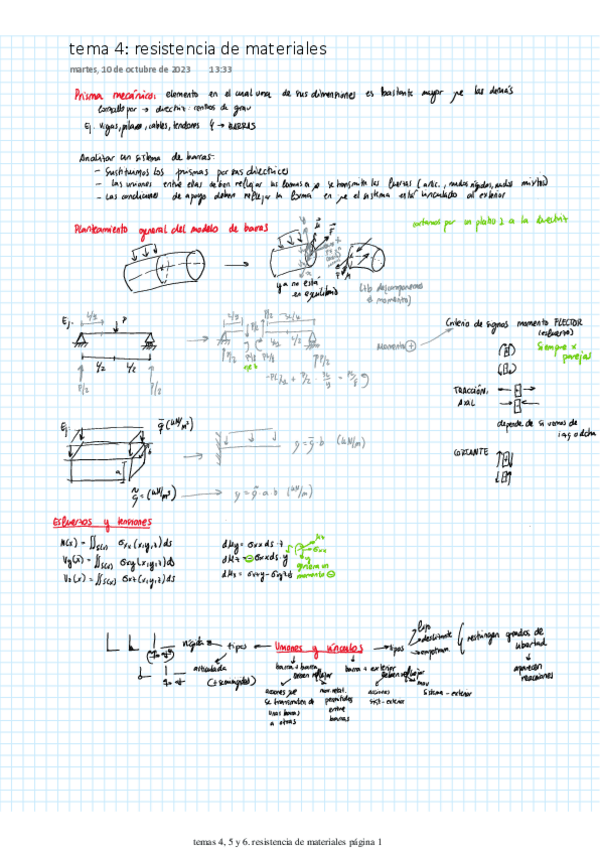 tema 4: resistencia de materiales
martes, 10 de octubre de 2023 13:33
Prisma mecánico: elemento en el cual una de sus dimensiones es bastante mayor que las demás
compuesto por → directriz: centros de grav
Ej. vigas, pilares, cables, tendones → BARRAS
Analizar un sistema de barras:
- Sustituimos los prismas por sus directrices
- Las uniones entre ellas deben reflejar la forma en que se transmiten las fuerzas (artic., nudos rígidos, nudos mixtos)
- Las condiciones de apoyo deben reflejar la forma en que el sistema está vinculado al exterior
Planteamiento general del modelo de barras
cortamos por un plano ⊥ a la directriz
ya no está en equilibrio
(tb descomponemos el momento)
Ej.
L/3
P
L/2 L/2
P/2 P/2
Momento +
Criterio de signos momento FLECTOR
(esfuerzos)
Siempre x parejas
TRACCIÓN:
AXIL
depende de si vemos de izq o dcha
CORTANTE
Ej.
q̄ (kN/m²)
q = q̄·b (kN/m)
(kN/m³)
q = q̄·a·b (kN/m)
Esfuerzos y tensiones
N(x) = ∬S(x) σxx(x,y,z) ds
Vy(x) = ∬S(x) σxy(x,y,z) ds
Vz(x) = ∬S(x) σxz(x,y,z) ds
dMy = σxx ds · z
dMz = ⊖ σxx ds · y
genera un momento ⊖
rígida
tipos
Uniones y vínculos
tipos
articulada
(+ semirrígidos)
barra + barra
deben reflejar
barra + exterior
deben reflejar
acciones que se transmiten de unas barras a otras
mov relat. permitidos entre barras
acciones sist - exterior
mov sistema - exterior
fijo
deslizante
empotram
restringen grados de libertad
aparecen reacciones
temas 4, 5 y 6. resistencia de materiales página 1